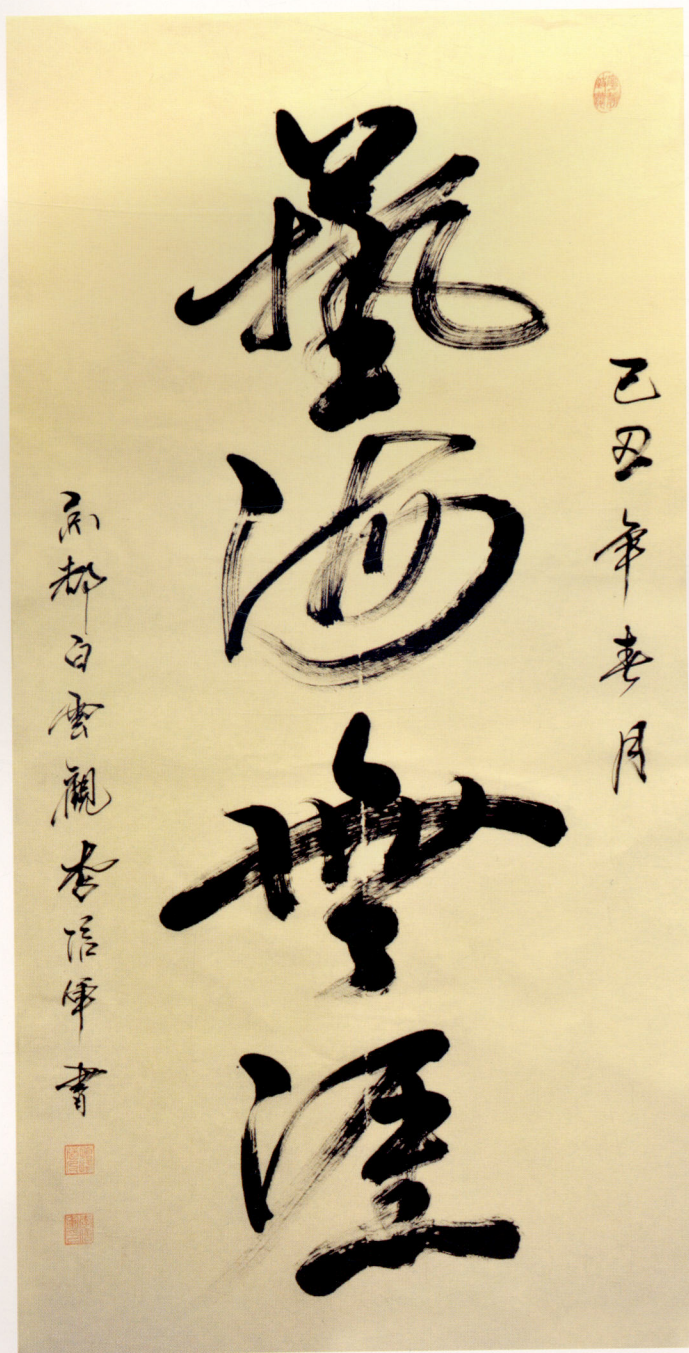 己丑年春月
藝海無涯
京都白雲觀李信軍書